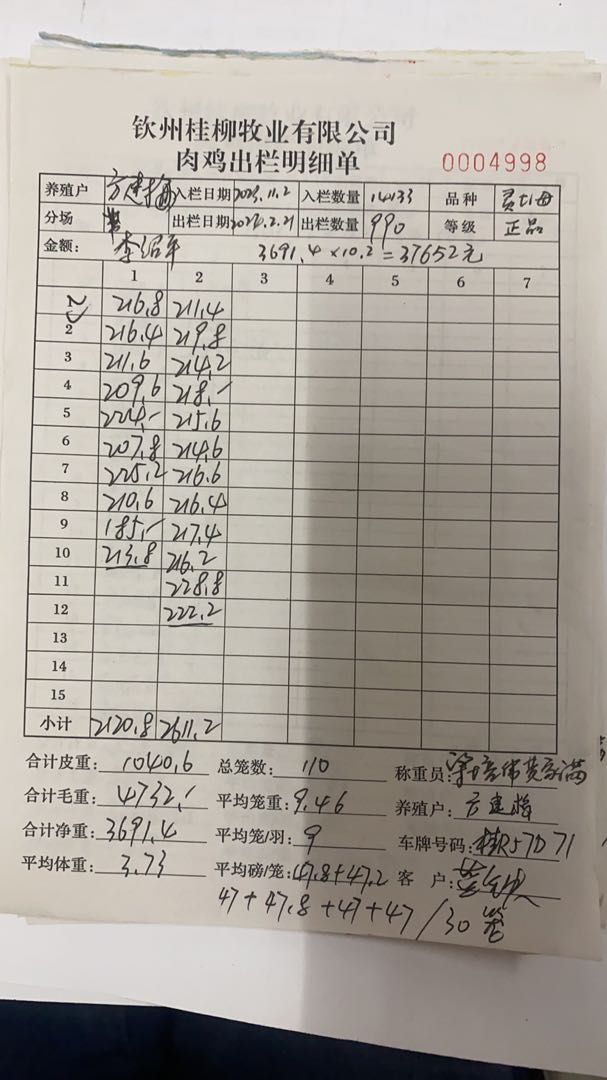 钦州桂柳牧业有限公司
肉鸡出栏明细单
0004998
养殖户 方建梅 入栏日期 2023.11.2 入栏数量 14133 品种
分场 出栏日期 出栏数量 990 等级 正品
金额: 3691.4×10.2=37652元
1 2 3 4 5 6 7
216.8 211.4
2 216.4 219.8
3 211.6 214.2
4 209.6 218.-
5 224.- 215.6
6 207.8 214.6
7 225.2 216.6
8 210.6 216.4
9 185.- 217.4
10 213.8 216.2
11 228.8
12 222.2
13
14
15
小计 2120.8 2611.2
合计皮重: 1040.6 总笼数: 110 称重员:
合计毛重: 4732.- 平均笼重: 9.46 养殖户: 方建梅
合计净重: 3691.4 平均笼/羽: 9 车牌号码: 桂R57D71
平均体重: 3.73 平均磅/笼: 47.8+47.2 客 户:
47+47.8+47+47/30笼